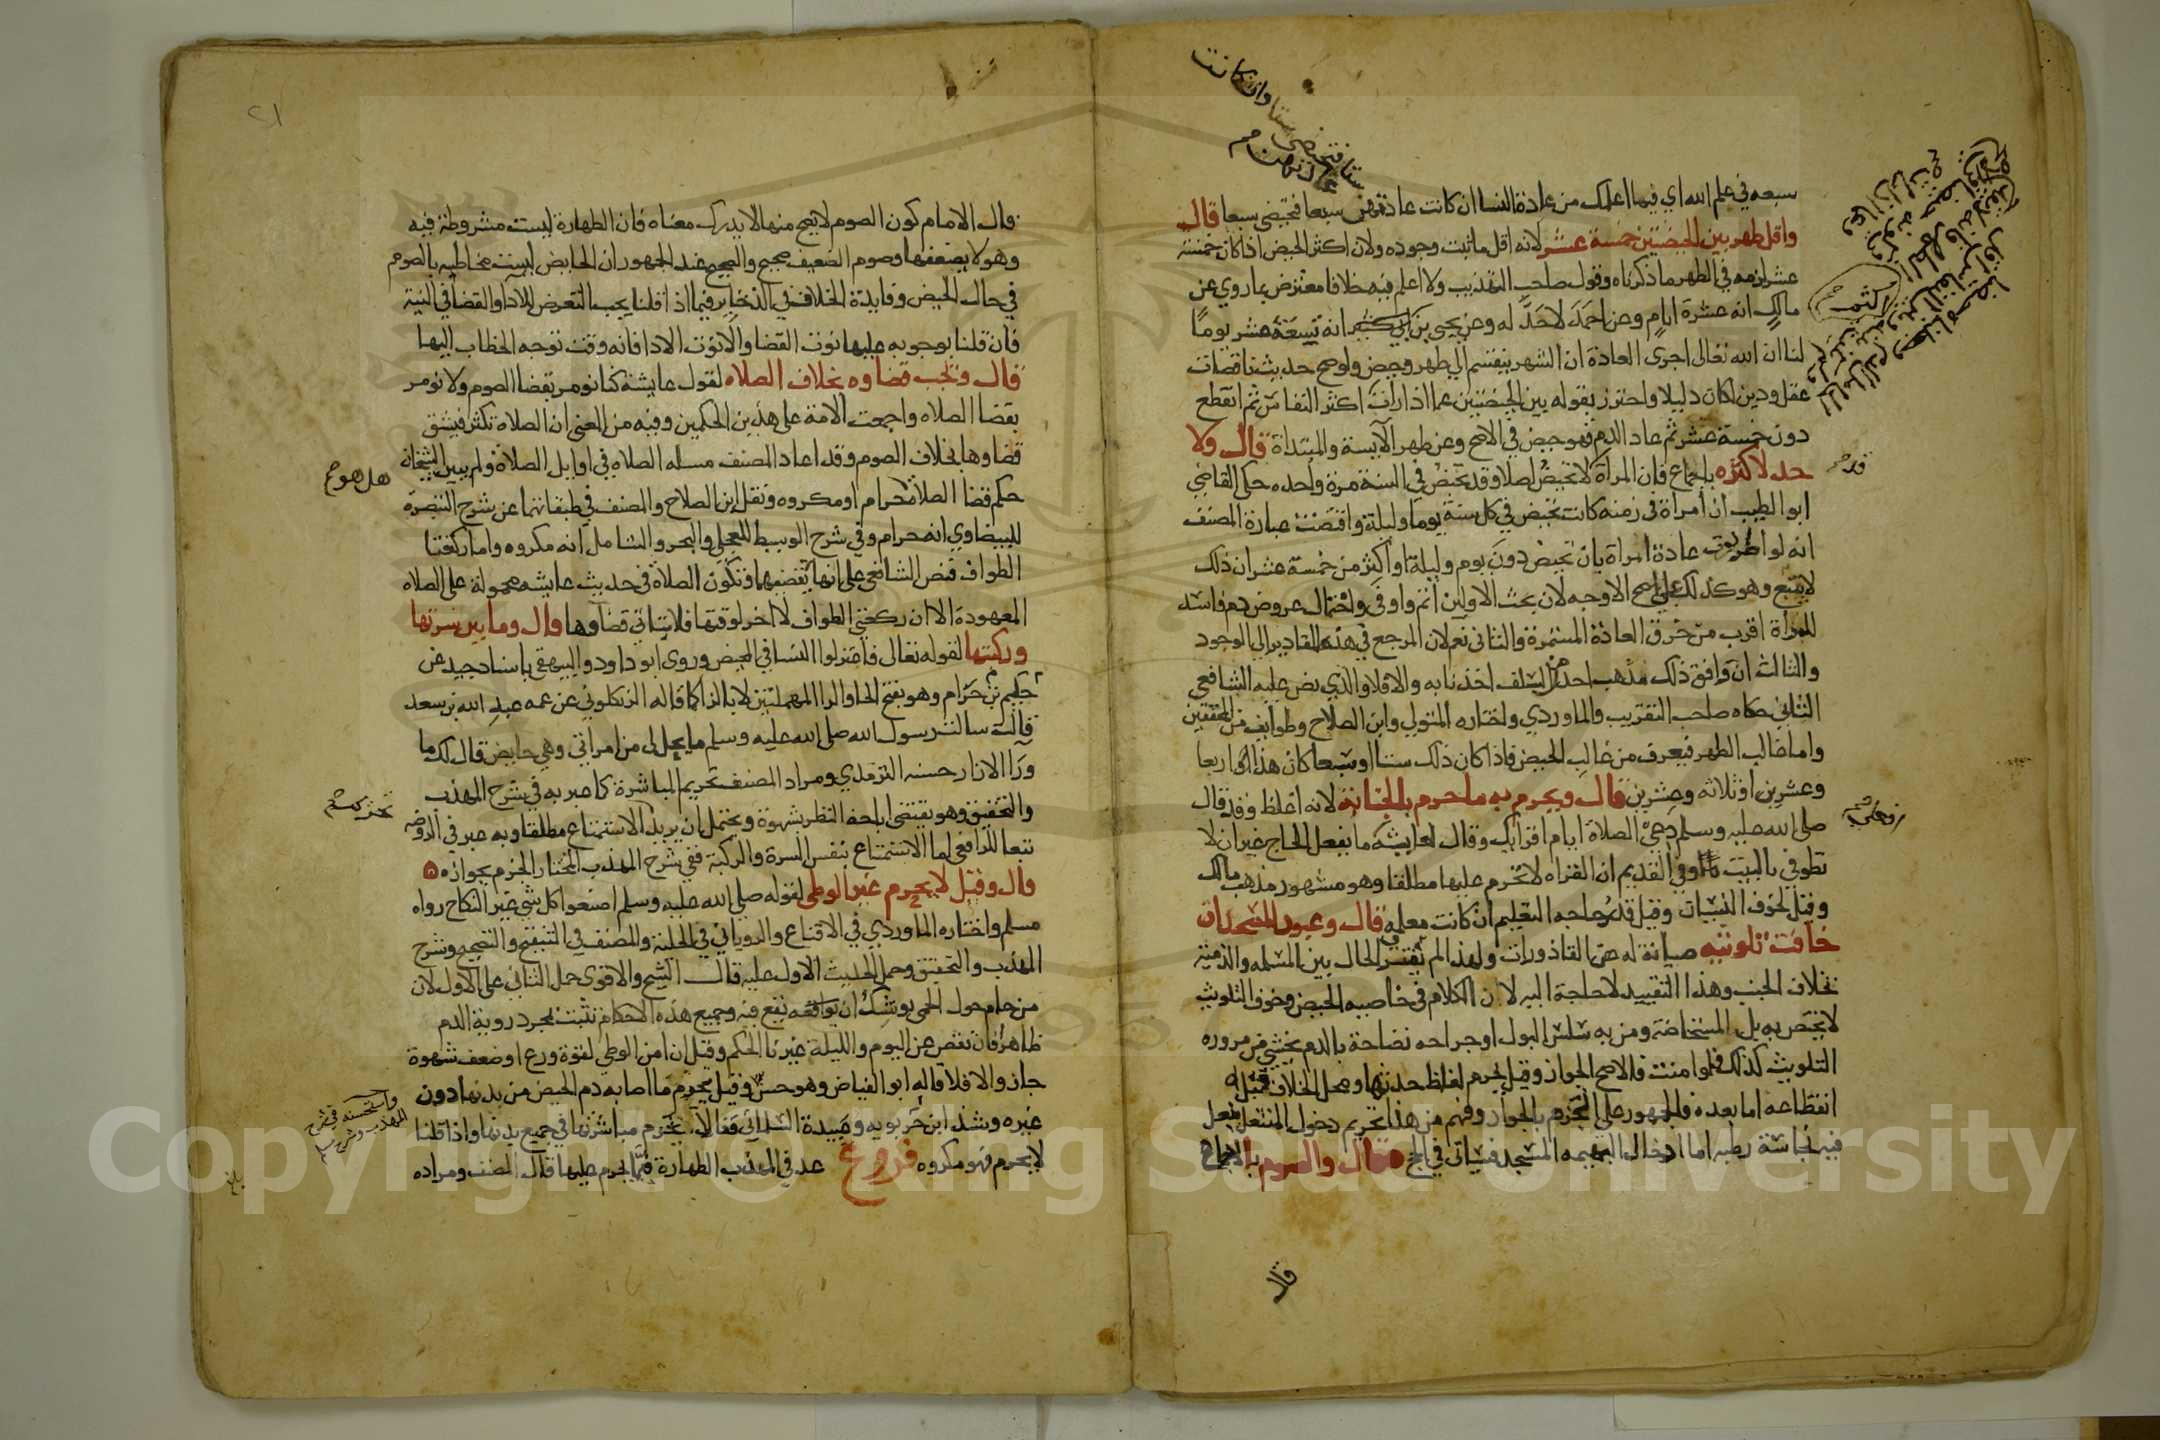 سبعه في علم الله اي فيما اعلمك من عادة النسا ان كانت عادتهن سبعا فتحيضي سبعا قال
واقل طهر بين الحيضتين خمسة عشر لانه اقل ما ثبت وجوده ولان اكثر الحيض اذا كان خمسة
عشر لزمه في الطهر ما ذكرناه وقول صاحب التهذيب ولا اعلم فيه خلافا معترض بما روي عن
مالك انه عشرة ايام وعن احمد لا حد له وعن يحيى بن اكثم انه تسعة عشر يوما
لنا ان الله تعالى اجرى العادة ان الشهر ينقسم الى طهر وحيض ولو صح حديث ناقصات
عقل ودين لكان دليلا واحترز بقوله بين الحيضتين عما اذا رات اكثر النفاس ثم انقطع
دون خمسة عشر ثم عاد الدم فهو حيض في الاصح وعن طهر الآيسة والمبتداة قال ولا
حد لاكثره باجماع فان المرأة قد لا تحيض اصلا وقد تحيض في السنة مرة واحده حكى القاضي
ابو الطيب ان امراة في زمنه كانت تحيض في كل سنة يوما وليلة واقتضت عبارة المصنف
انه لو اطردت عادة امراة بان تحيض دون يوم وليلة او اكثر من خمسة عشر ان ذلك
لا يتبع وهو كذلك على اصح الاوجه لان بحث الاولين اتم واوفى واحتمال عروض دم فاسد
للمراة اقرب من خرق العادة المستمرة والثاني نعم لان المرجع في هذه المقادير الى الوجود
والثالث ان وافق ذلك مذهب احد من السلف اخذنا به والا فلا والذي نص عليه الشافعي
الثاني حكاه صاحب التقريب والماوردي واختاره المتولي وابن الصلاح وطوايف من المحققين
واما غالب الطهر فيعرف من غالب الحيض فاذا كان ذلك ستا او سبعا كان هذا اربعا
وعشرين او ثلاثه وعشرين قال ويحرم به ما حرم بالجنابة لانه اغلظ وقد قال
صلى الله عليه وسلم دعي الصلاة ايام اقرايك وقال لعايشه ما يفعل الحاج غير ان لا
تطوفي بالبيت وفي القديم ان القراه لا تحرم عليها مطلقا وهو مشهور مذهب مالك
وقيل لخوف النسيان وقيل قدر حاجه التعليم ان كانت معلمه قال وعبور المسجد ان
خافت تلويثه صيانة له عن القاذورات ولهذا لم يفترق الحال بين المسلمه والذمية
بخلاف الجنب وهذا التقييد لا حاجة اليه لان الكلام في خاصيه الحيض وخوف التلويث
لا يختص به بل المستحاضة ومن به سلس البول او جراحه نضاحة بالدم يخشى من مروره
التلويث كذلك فلو امنت فالاصح الجواز وقيل يحرم لغلظ حدثها ومحل الخلاف قبل
انقطاعه اما بعده فالجمهور على الجزم بالجواز وفهم من هذا تحريم دخول المنتعل بنعل
فيه نجاسة رطبه اما ادخال البهيمه المسجد فسياتي في الحج قال والصوم بالاجماع
قال
قال الامام كون الصوم لا يصح منها لا يدرك معناه فان الطهارة ليست مشروطة فيه
وهو لا يضعفها وصوم الضعيف صحيح والصحيح عند الجمهور ان الحايض ليست مخاطبه بالصوم
في حال الحيض وفايدة الخلاف في الذخاير فيما اذا قلنا يجب التعرض للادا والقضا في النية
فان قلنا بوجوبه عليها نوت القضا والا نوت الادا فانه وقت توجه الخطاب اليها
قال وتجب قضاوه بخلاف الصلاه لقول عايشة كنا نومر بقضا الصوم ولا نومر
بقضا الصلاه واجمعت الامة على هذين الحكمين وفيه من المعنى ان الصلاة تكثر فيشق
قضاوها بخلاف الصوم وقد اعاد المصنف مسله الصلاه في اوايل الصلاة ولم يبين الشيخان
حكم قضا الصلاة حرام او مكروه ونقل ابن الصلاح والمصنف في طبقاتهما عن شرح التبصرة
للبيضاوي انه حرام وفي شرح الوسيط للعجلي والبحر والشامل انه مكروه واما ركعتا
الطواف فنص الشافعي على انها تقضيهما وتكون الصلاة في حديث عايشه محمولة على الصلاه
المعهودة الا ان ركعتي الطواف لا اخر لوقتها فلا يتاتى قضاوها قال وما بين سرتها
وركبتها لقوله تعالى فاعتزلوا النسا في المحيض وروى ابو داود والبيهقي باسناد جيد عن
حكيم بن حزام وهو بفتح الحا والرا المهملتين لا بالزا كما قاله الزنكلوني عن عمه عبد الله بن سعد
قال سالت رسول الله صلى الله عليه وسلم ما يحل لي من امراتي وهي حايض قال لك ما
ورآ الازار حسنه الترمذي ومراد المصنف تحريم المباشرة كما عبر به في شرح المهذب
والتحقيق وهو يقتضي اباحة النظر بشهوة ويحتمل ان يريد الاستمتاع مطلقا وبه عبر في الروضه
تبعا للرافعي اما الاستمتاع بنفس السرة والركبة ففي شرح المهذب المختار الجزم بجوازه
قال وقيل لا يحرم غير الوطي لقوله صلى الله عليه وسلم اصنعوا كل شي غير النكاح رواه
مسلم واختاره الماوردي في الاقناع والروياني في الحلية والمصنف في التنقيح والتصحيح وشرح
المهذب والتحقيق وحمل الحديث الاول عليه قال الشيخ والاقوى حمل الثاني على الاول لان
من حام حول الحمى يوشك ان يواقعه يقع فيه وجميع هذه الاحكام تثبت بمجرد روية الدم
ظاهرا فان نقص عن اليوم والليلة غيرنا الحكم وقيل ان امن الوطي لقوة ورع او ضعف شهوة
جاز والا فلا قاله ابو الفياض وهو حسن وقيل يحرم ما اصابه دم الحيض من بدنها دون
غيره وشذ ابن حربويه وعبيدة السلماني فقالا تحرم مباشرتها في جميع بدنها واذا قلنا
لا يحرم فهو مكروه فروع عد في المهذب الطهارة فيما يحرم عليها قال المصنف ومراده
هل هو
واستحسنه في شرح
المهذب
٢١
Copyright © King Saud University